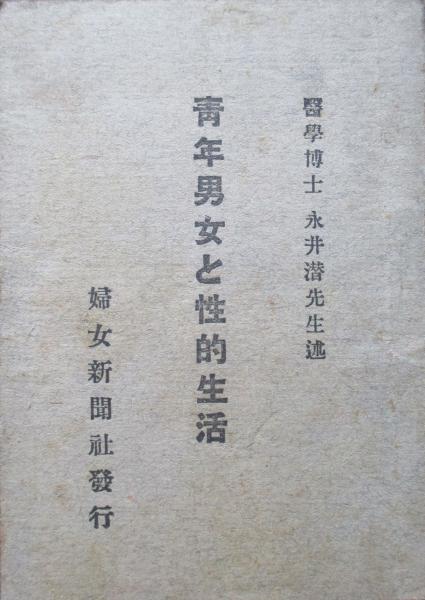 醫學博士 永井潜先生述
青年男女と性的生活
婦女新聞社發行